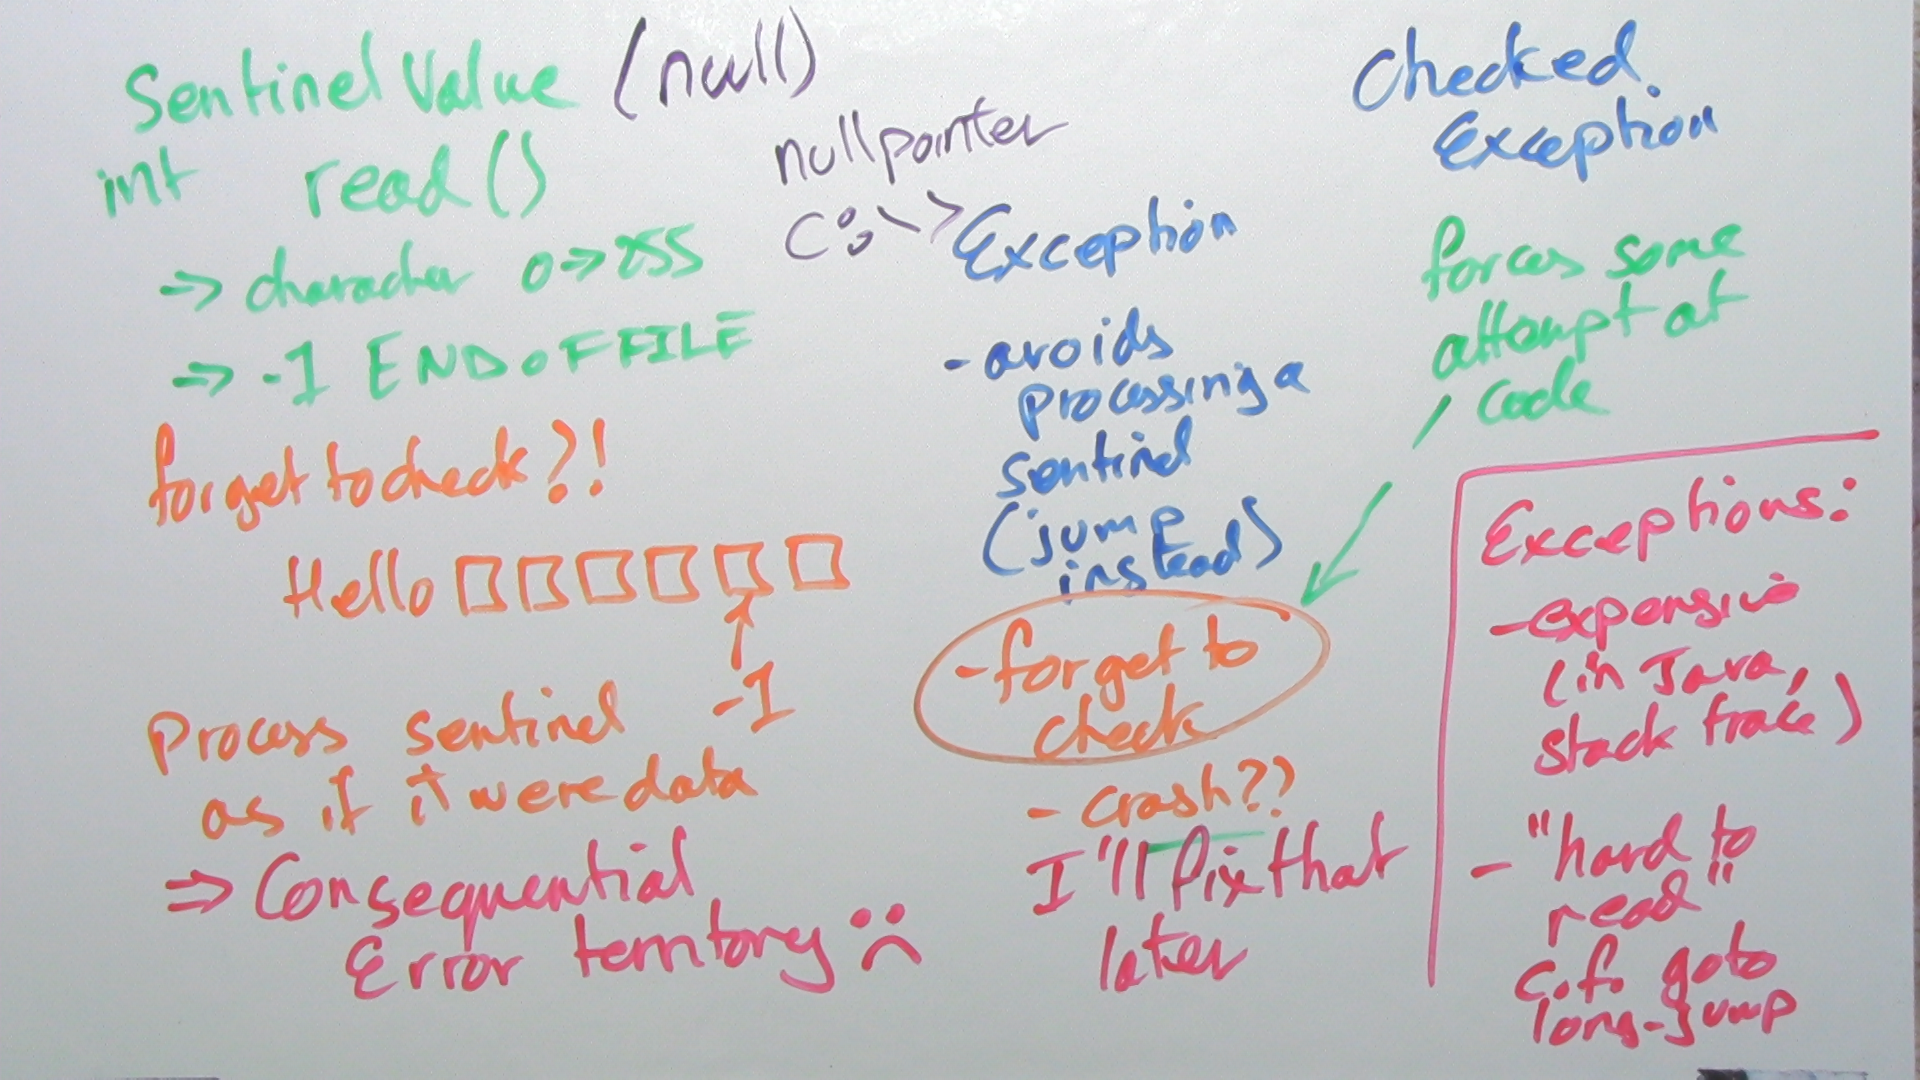 Sentinel Value (null)
int read()
=> character 0=>255
=> -1 END OF FILE
forget to check?!
Hello □□□□□□
-1
Process sentinel
as if it were data
=> Consequential
Error territory :(
nullpointer
C:\>
Exception
- avoids
processing a
sentinel
(jump
instead)
- forget to
check
- crash??
I'll fix that
later
Checked
Exception
forces some
attempt at
code
Exceptions:
- expensive
(in Java,
stack trace)
- "hard to
read"
c.f. goto
long-jump